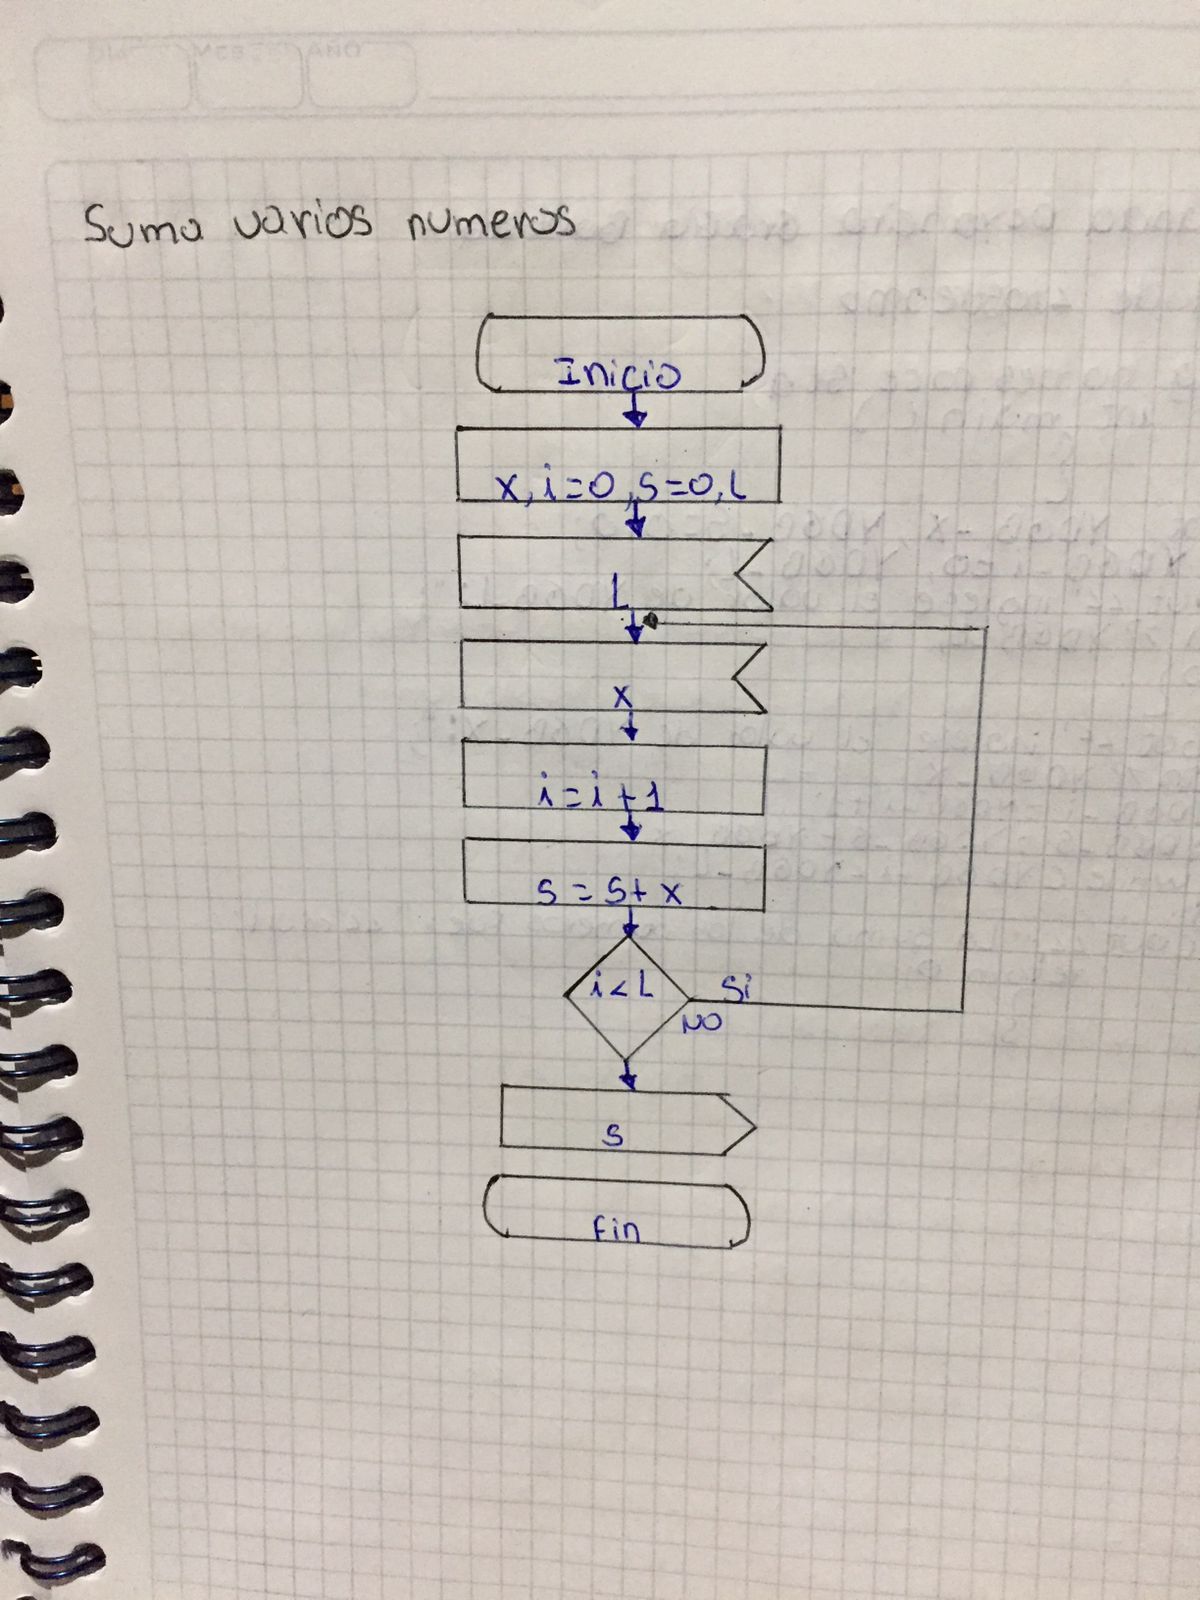 Suma varios numeros
Inicio
x, i=0, s=0, L
L
x
i=i+1
s = s+x
i<L
Si
NO
s
Fin